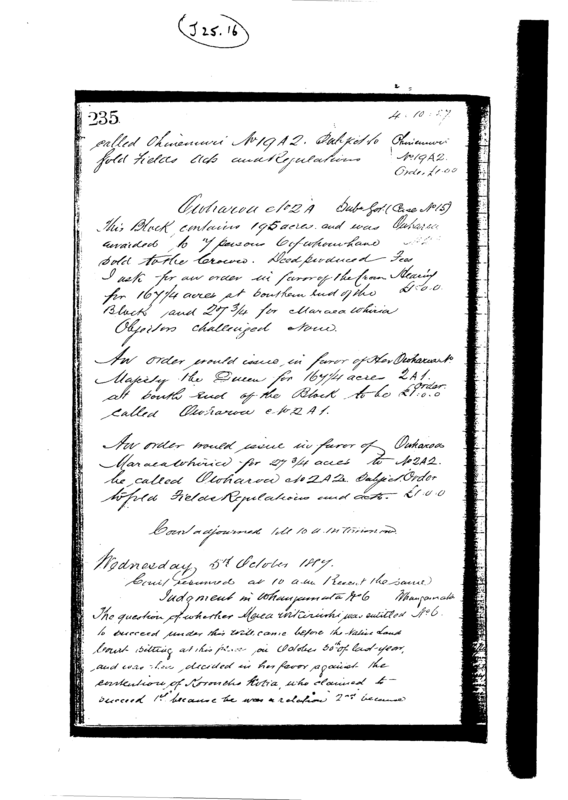 J 25.16
235
4.10.87
called Ohinemuri No 19 A2. Subject to Ohinemuri
Gold Fields Acts and Regulations No 19 A2.
Order £1.0.0
Owharoa No 2A Sub Gos (Case No 15)
This Block contains 195 acres and was Owharoa
awarded to 7 persons 6 of whom have
sold to the Crown. Deed produced Fee
I ask for an order in favor of the Crown Hearing
for 167 1/4 acres at Southern end of the £1.0.0
Block and 27 3/4 for Maraea Whiria
Objectors challenged None.
An order would issue in favor of Her Owharoa No
Majesty the Queen for 167 1/4 acres 2A1.
at South end of the Block to be Order £1.0.0
called Owharoa No 2A1.
An order would issue in favor of Owharoa
Maraea Whiria for 27 3/4 acres to No 2A2.
be called Owharoa No 2A2. Subject Order
to Gold Fields Regulations and acts. £1.0.0
Court adjourned till 10 a.m. tomorrow
Wednesday, 5th October 1887.
Court resumed at 10 a.m. Present the same
Judgment in Whangamata No 6 Whangamata
The question of whether Mereana was entitled No 6.
to succeed under this will came before the Native Land
Court sitting at this place on October 30th of last year,
and was then decided in her favor against the
contention of Horomona, who claimed to
succeed 1st because he was a relation 2nd because